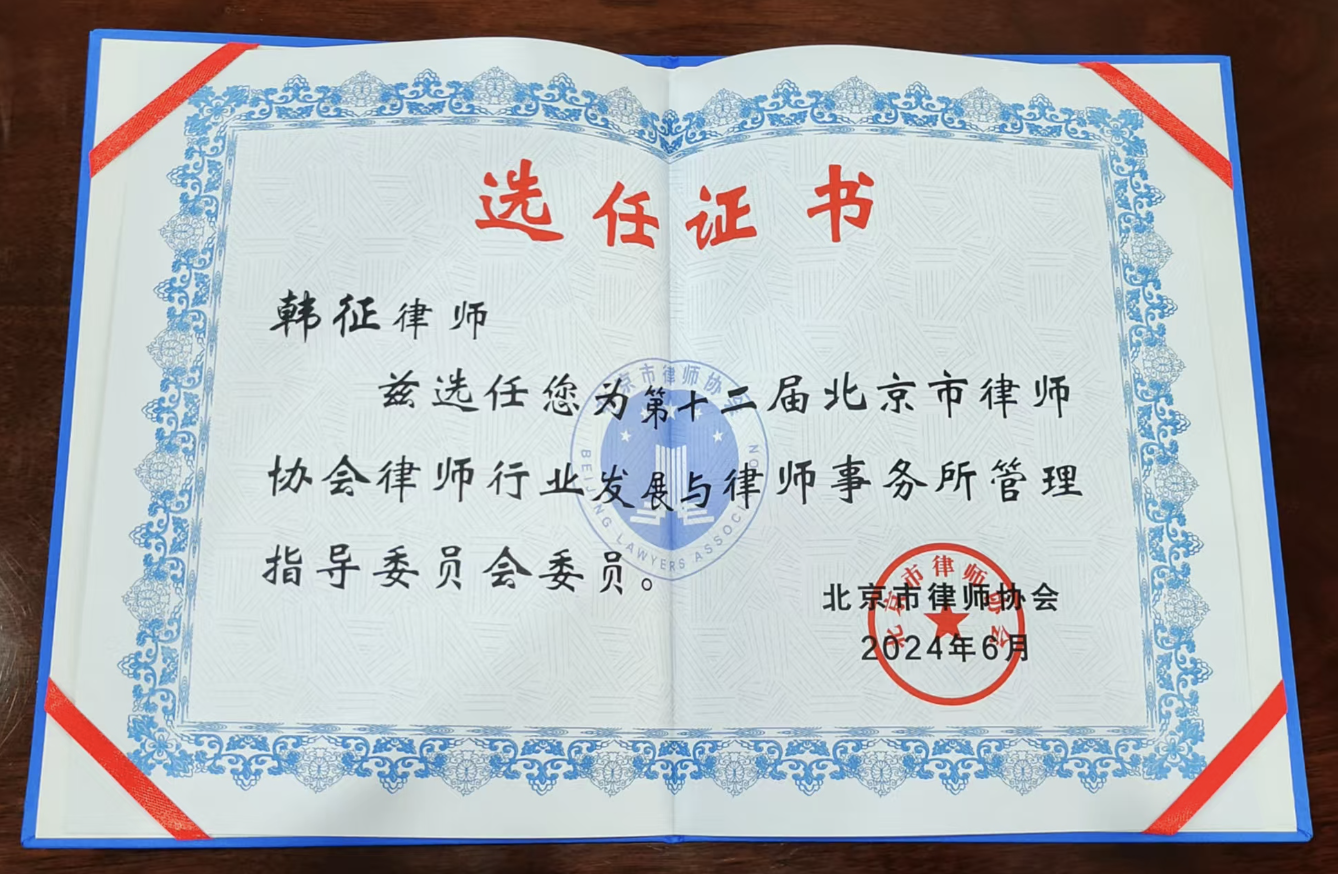 选任证书
韩征律师
兹选任您为第十二届北京市律师
协会律师行业发展与律师事务所管理
指导委员会委员。
北京市律师协会
BEIJING LAWYERS ASSOCIATION
北京市律师协会
2024年6月
北京市律师协会